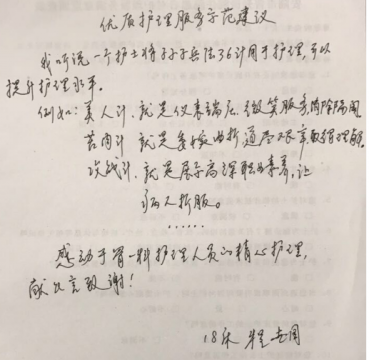 优质护理服务示范建议
我听说一个护士将孙子兵法36计用于护理,可以
提升护理水平。
例如:美人计,就是仪表端庄、微笑服务消除隔阂
苦肉计 就是委婉曲折通尽艰辛取得理解。
攻战计,就是展示高深职业素养,让
病人折服。
……
感动于骨一科护理人员的精心护理,
献此言致谢!
18床 程志国